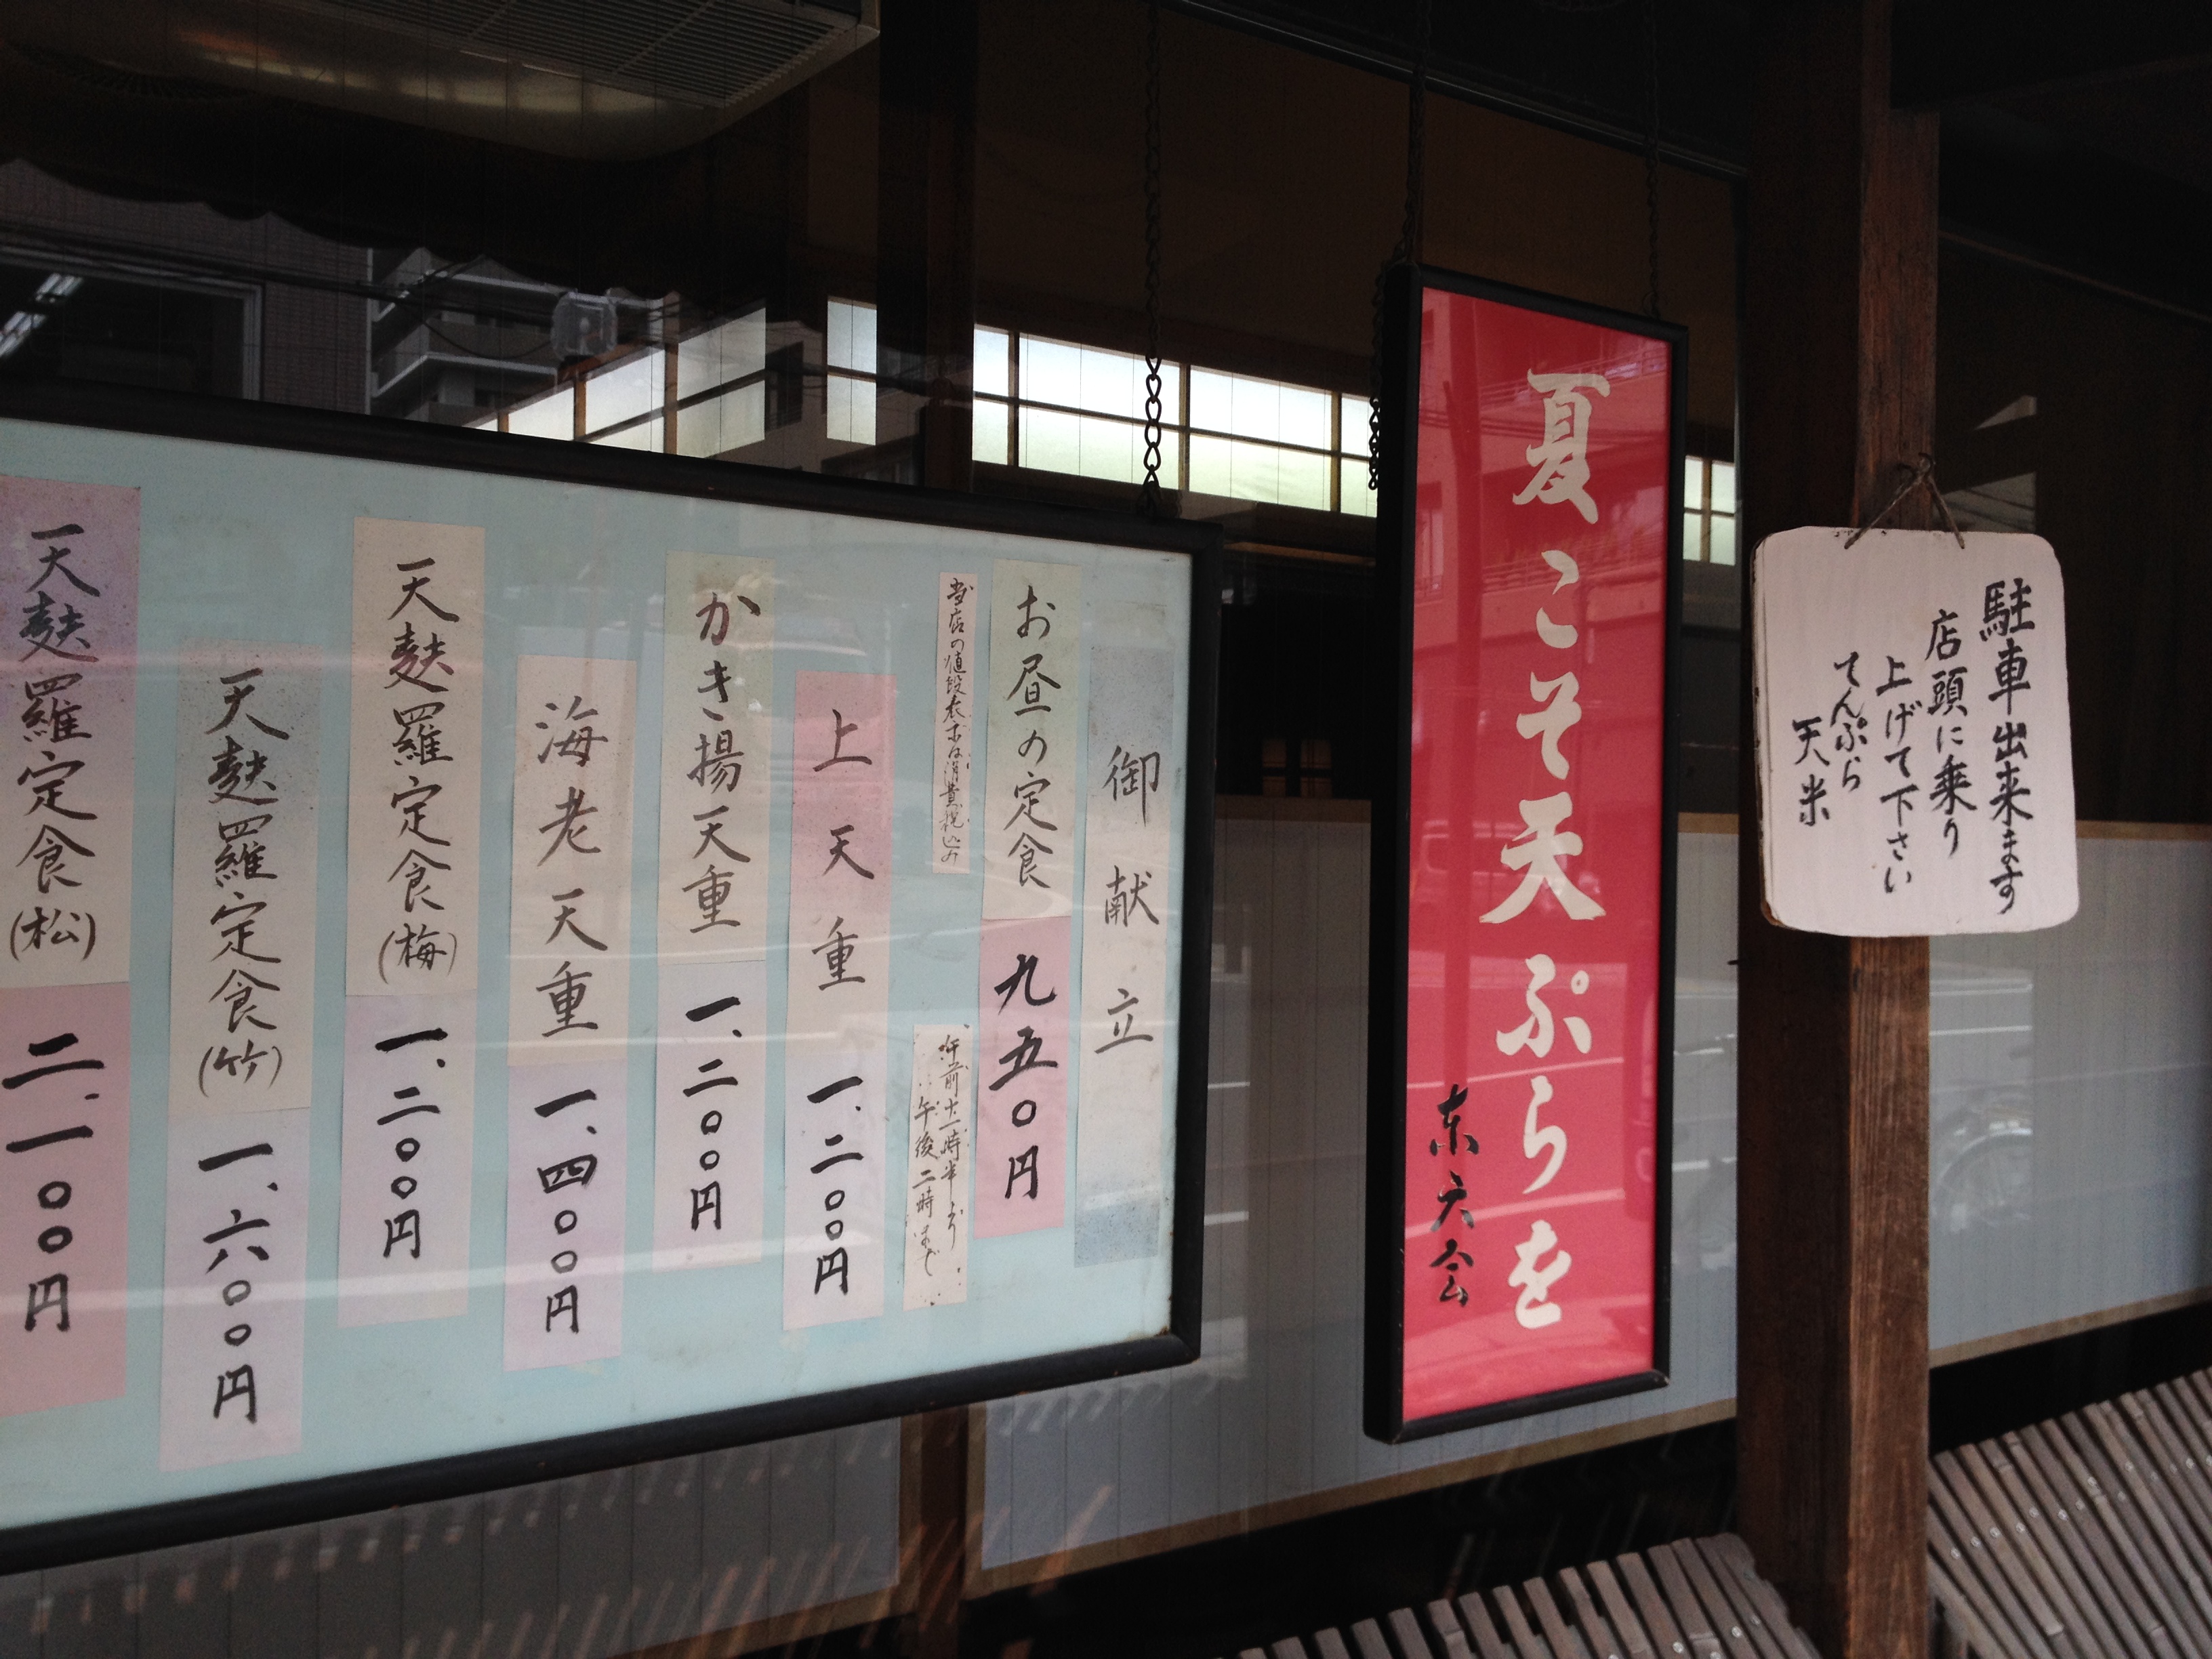 駐車出来ます
店頭に乗り
上げて下さい
てんぷら
天米
夏こそ天ぷらを
東天会
御献立
お昼の定食 九五〇円
当店の値段表示は消費税込み
午前十一時半より
午後二時まで
上天重 一、二〇〇円
かき揚天重 一、二〇〇円
海老天重 一、四〇〇円
天麩羅定食(梅) 一、二〇〇円
天麩羅定食(竹) 一、六〇〇円
天麩羅定食(松) 二、一〇〇円